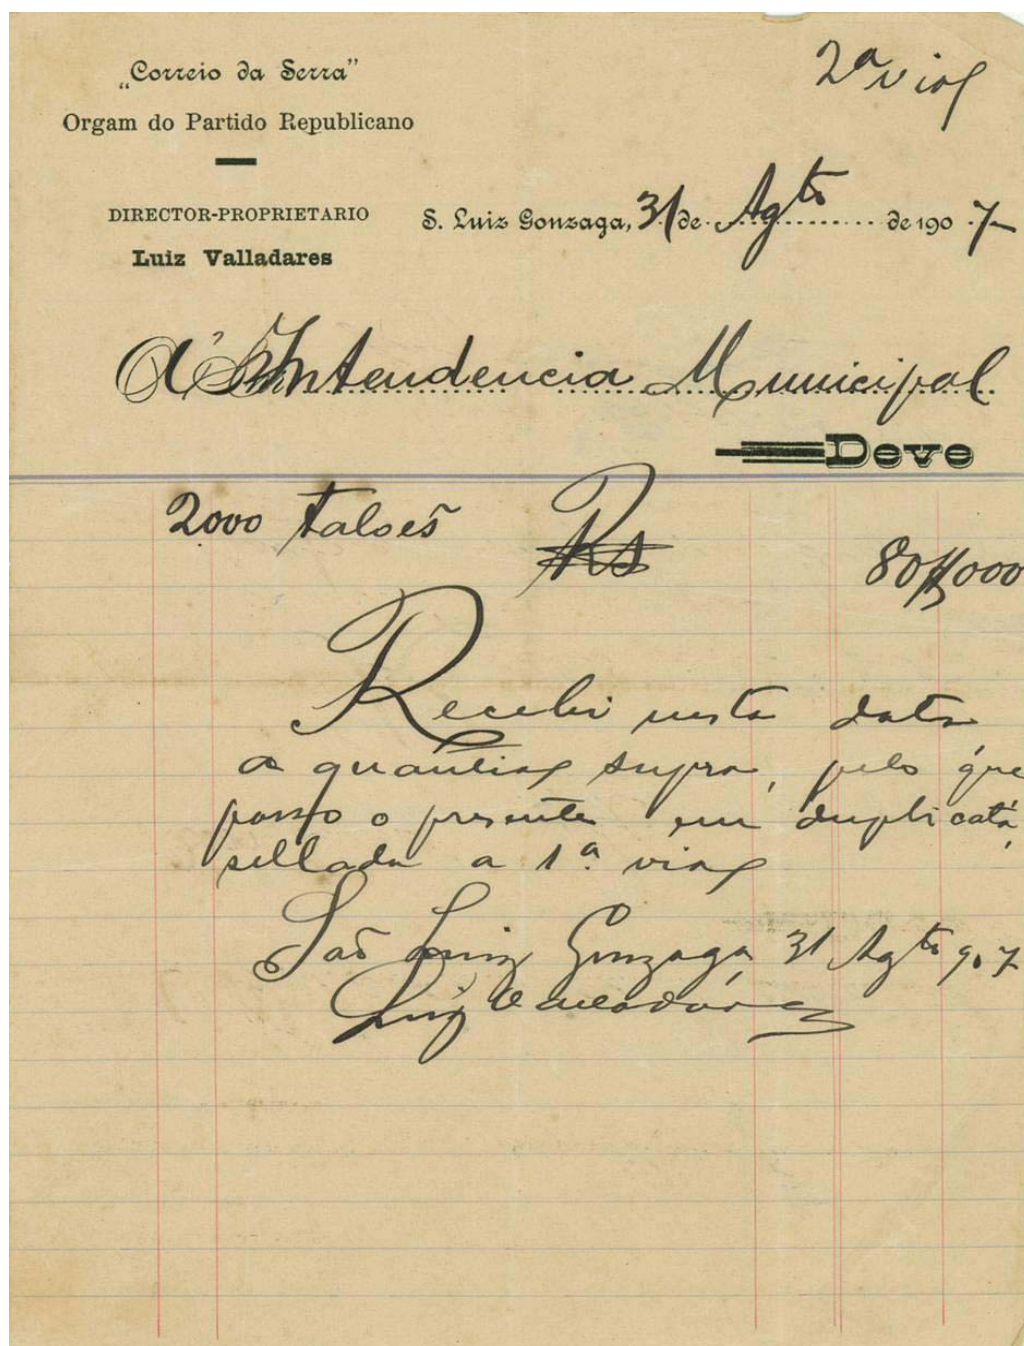 „Correio da Serra”
Orgam do Partido Republicano
DIRECTOR-PROPRIETARIO
Luiz Valladares
2ª via
S. Luiz Gonzaga, 31 de Agto de 1907
A' Intendencia Municipal
Deve
2.000 talões Rs 80$000
Recebi nesta data
a quantia supra, pelo que
passo o presente em duplicata,
sellada a 1ª via
São Luiz Gonzaga, 31 Agto 907
Luiz Valladares